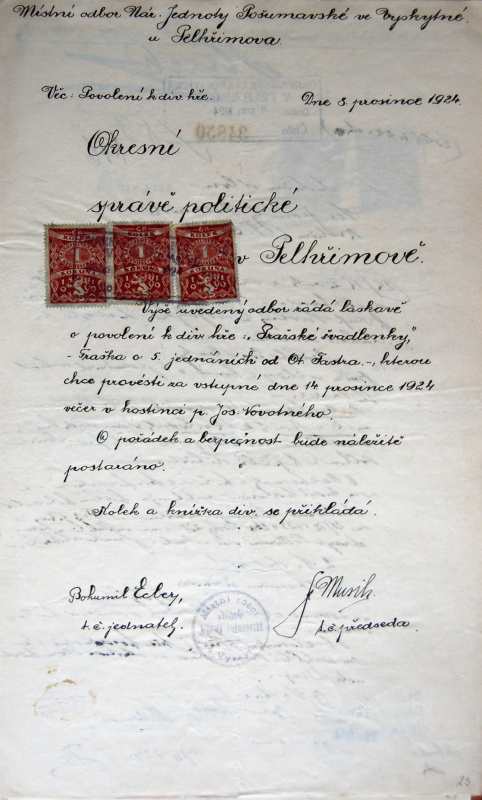 Místní odbor Nár. Jednoty Pošumavské ve Vyskytné
u Pelhřimova.
Věc: Povolení k div. hře.
Dne 5. prosince 1924.
34850
Okresní
správě politické
v Pelhřimově.
KOLEK
1
KORUNA
KOLEK
1
KORUNA
KOLEK
1
KORUNA
Výše uvedený odbor žádá laskavě
o povolení k div. hře „Pražské švadlenky,"
- Fraška o 5. jednáních od Ot. Fastra.-, kterou
chce provésti za vstupné dne 14. prosince 1924
večer v hostinci p. Jos. Novotného.
O pořádek a bezpečnost bude náležitě
postaráno.
Kolek a knížka div. se přikládá.
Bohumil Ecler,
t. č. jednatel.
t. č. předseda.
Místní odbor
23